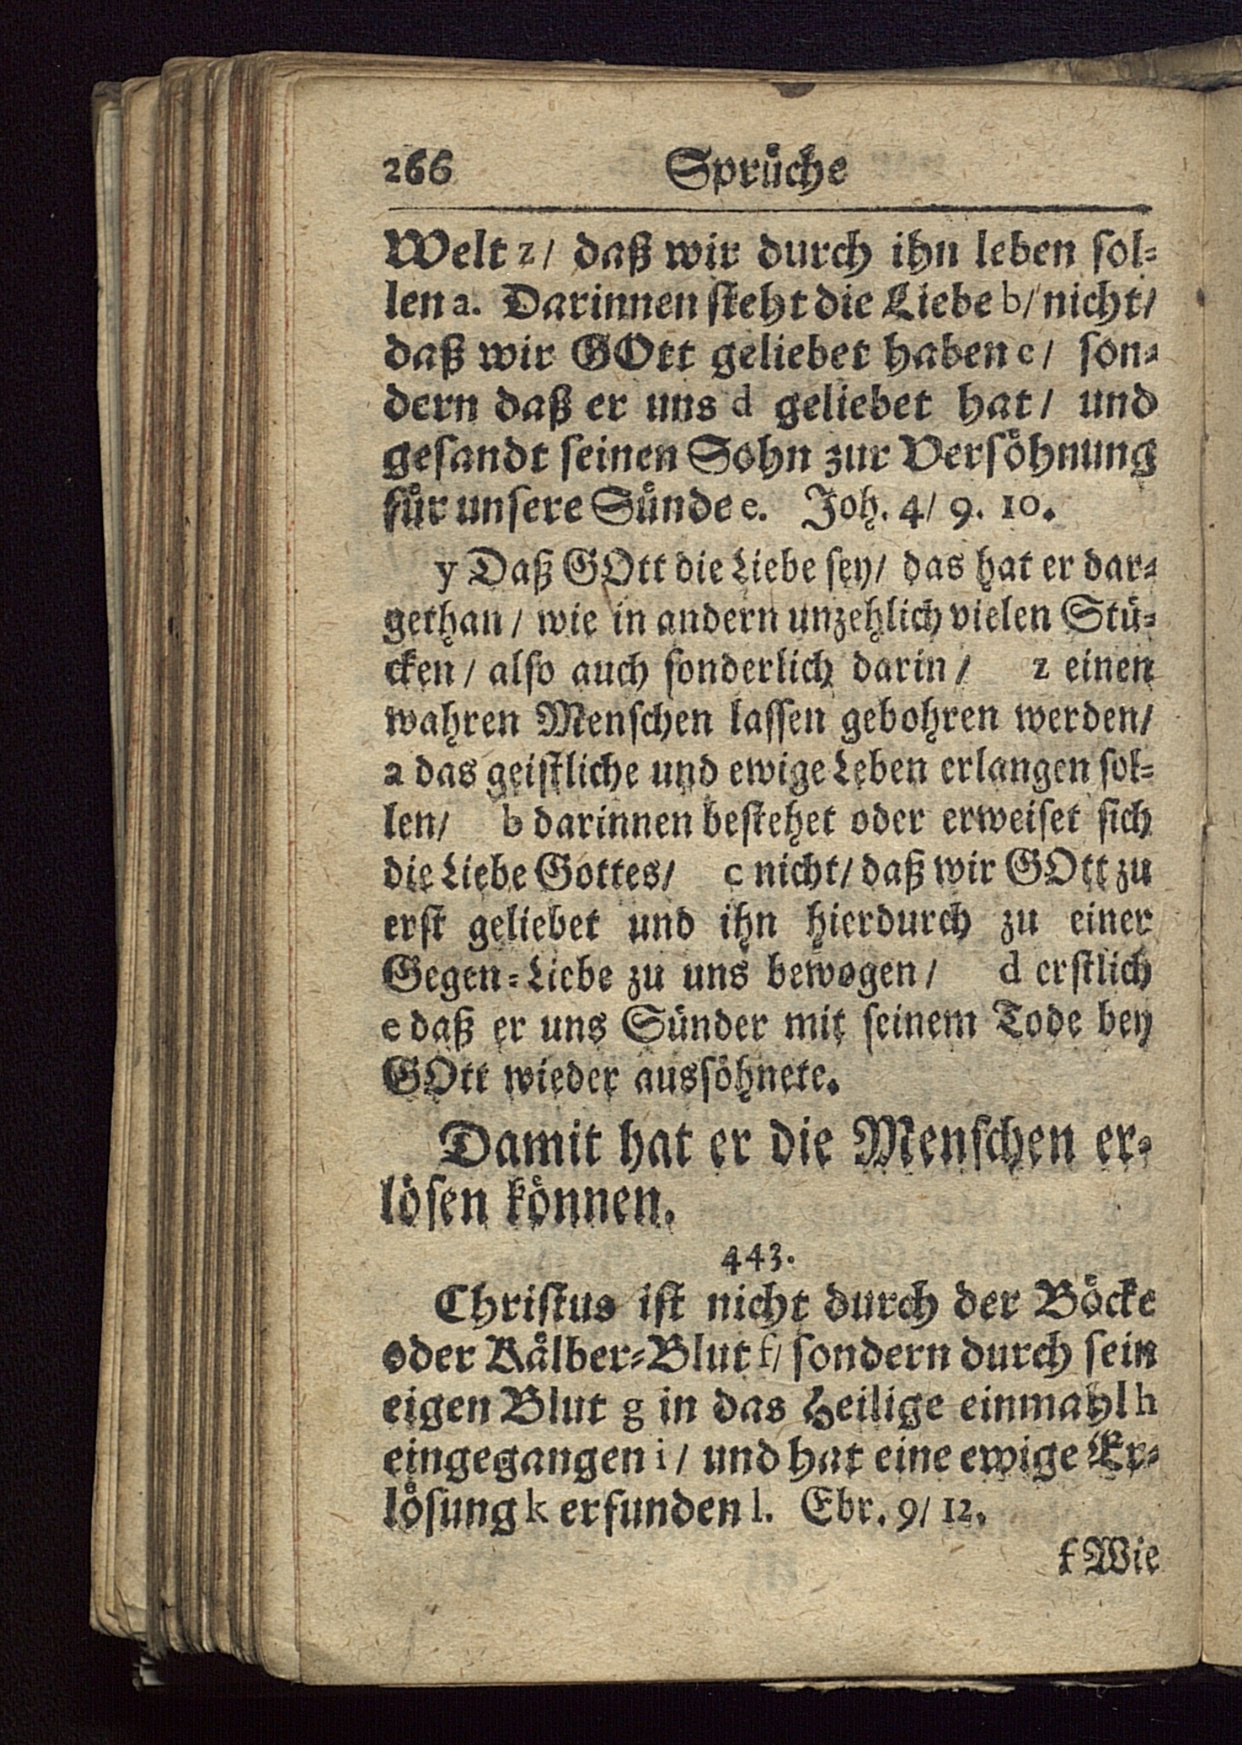 266 Sprüche
Welt z/ daß wir durch ihn leben sol=
len a. Darinnen steht die Liebe b/ nicht/
daß wir GOtt geliebet haben c/ son=
dern daß er uns d geliebet hat/ und
gesandt seinen Sohn zur Versöhnung
für unsere Sünde e. Joh. 4/ 9. 10.
y Daß GOtt die Liebe sey/ das hat er dar=
gethan/ wie in andern unzehlich vielen Stü=
cken/ also auch sonderlich darin/ z einen
wahren Menschen lassen gebohren werden/
a das geistliche und ewige Leben erlangen sol=
len/ b darinnen bestehet oder erweiset sich
die Liebe Gottes/ c nicht/ daß wir GOtt zu
erst geliebet und ihn hierdurch zu einer
Gegen=Liebe zu uns bewogen/ d erstlich
e daß er uns Sünder mit seinem Tode bey
GOtt wieder aussöhnete.
Damit hat er die Menschen er=
lösen können.
443.
Christus ist nicht durch der Böcke
oder Kälber=Blut f/ sondern durch sein
eigen Blut g in das Heilige einmahl h
eingegangen i/ und hat eine ewige Er=
lösung k erfunden l. Ebr. 9/ 12.
f Wie